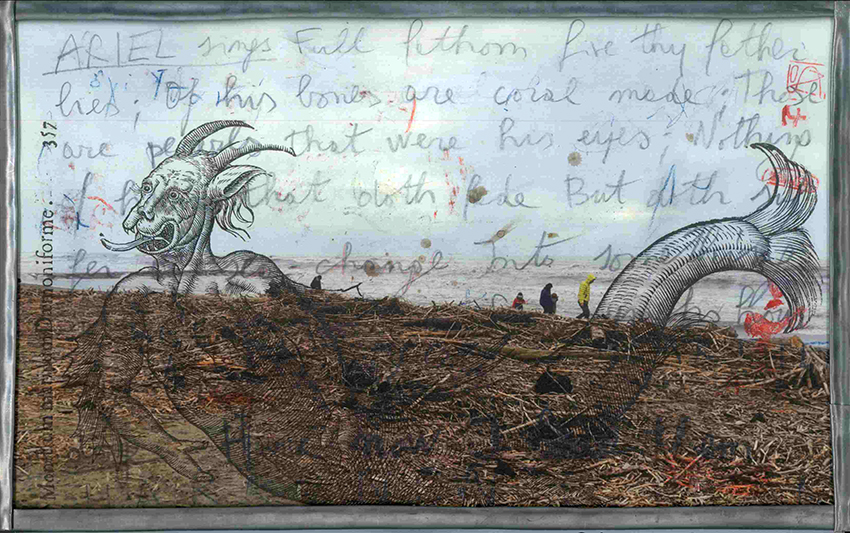 ARIEL sings Full fathom five thy father
lies; Of his bones are coral made; Those
are pearls that were his eyes; Nothing
of that doth fade But doth suf
fer change into
Hark now I hear them
Monstrum marinum Dæmoniforme. 357